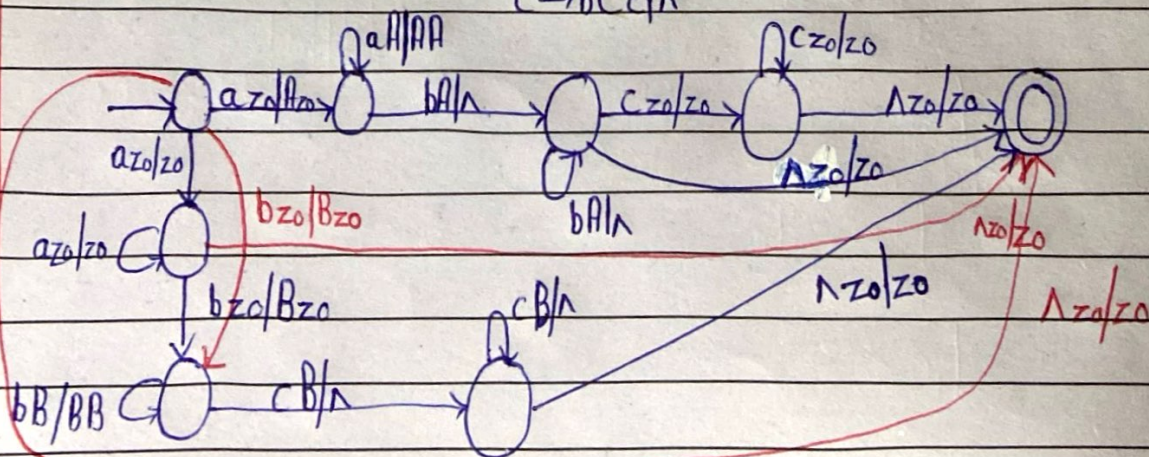 aA/AA
Cz0/z0
az0/Az0
bA/Λ
Cz0/z0
Λz0/z0
az0/z0
Λz0/z0
bz0/Bz0
bA/Λ
Λz0/z0
az0/z0
Λz0/z0
bz0/Bz0
cB/Λ
Λz0/z0
bB/BB
cB/Λ